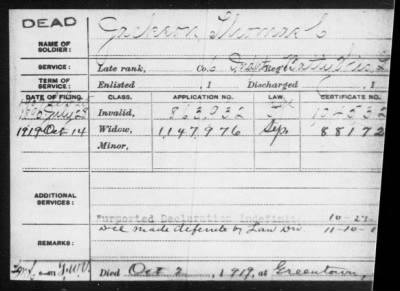 DEAD
NAME OF SOLDIER: Jackson Thomas C
SERVICE: Late rank, Co.
TERM OF SERVICE: Enlisted , 1 Discharged , 1
DATE OF FILING. CLASS. APPLICATION NO. LAW. CERTIFICATE NO.
July 28 Invalid,
1919 Oct 14 Widow, 1,147,976 Sep. 88172
Minor,
ADDITIONAL SERVICES:
Purported Declaration Indefinite 10-27-
REMARKS: Dec made definite by Law Div 11-10-
Died Oct 2, 1919, at Greentown,